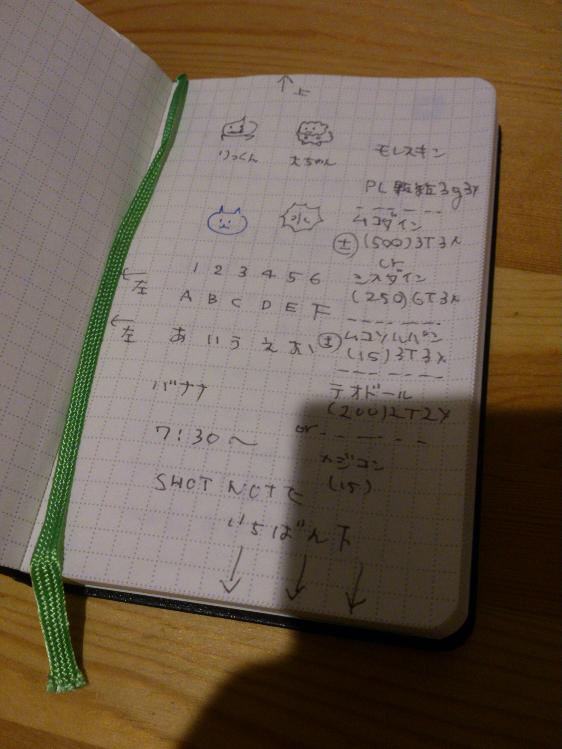 ↑上
りっくん 大ちゃん
モレスキン
PL顆粒3g3x
ムコダイン
± (500)3T3x
or
シスダイン
(250)6T3x
←左
1 2 3 4 5 6
A B C D E F
←左
あ い う え お
± ムコソルバン
(15)3T3x
バナナ
テオドール
(200)2T2x
7:30〜
or
メジコン
(15)
SHOT NOTE
いちばん下
↓ ↓ ↓